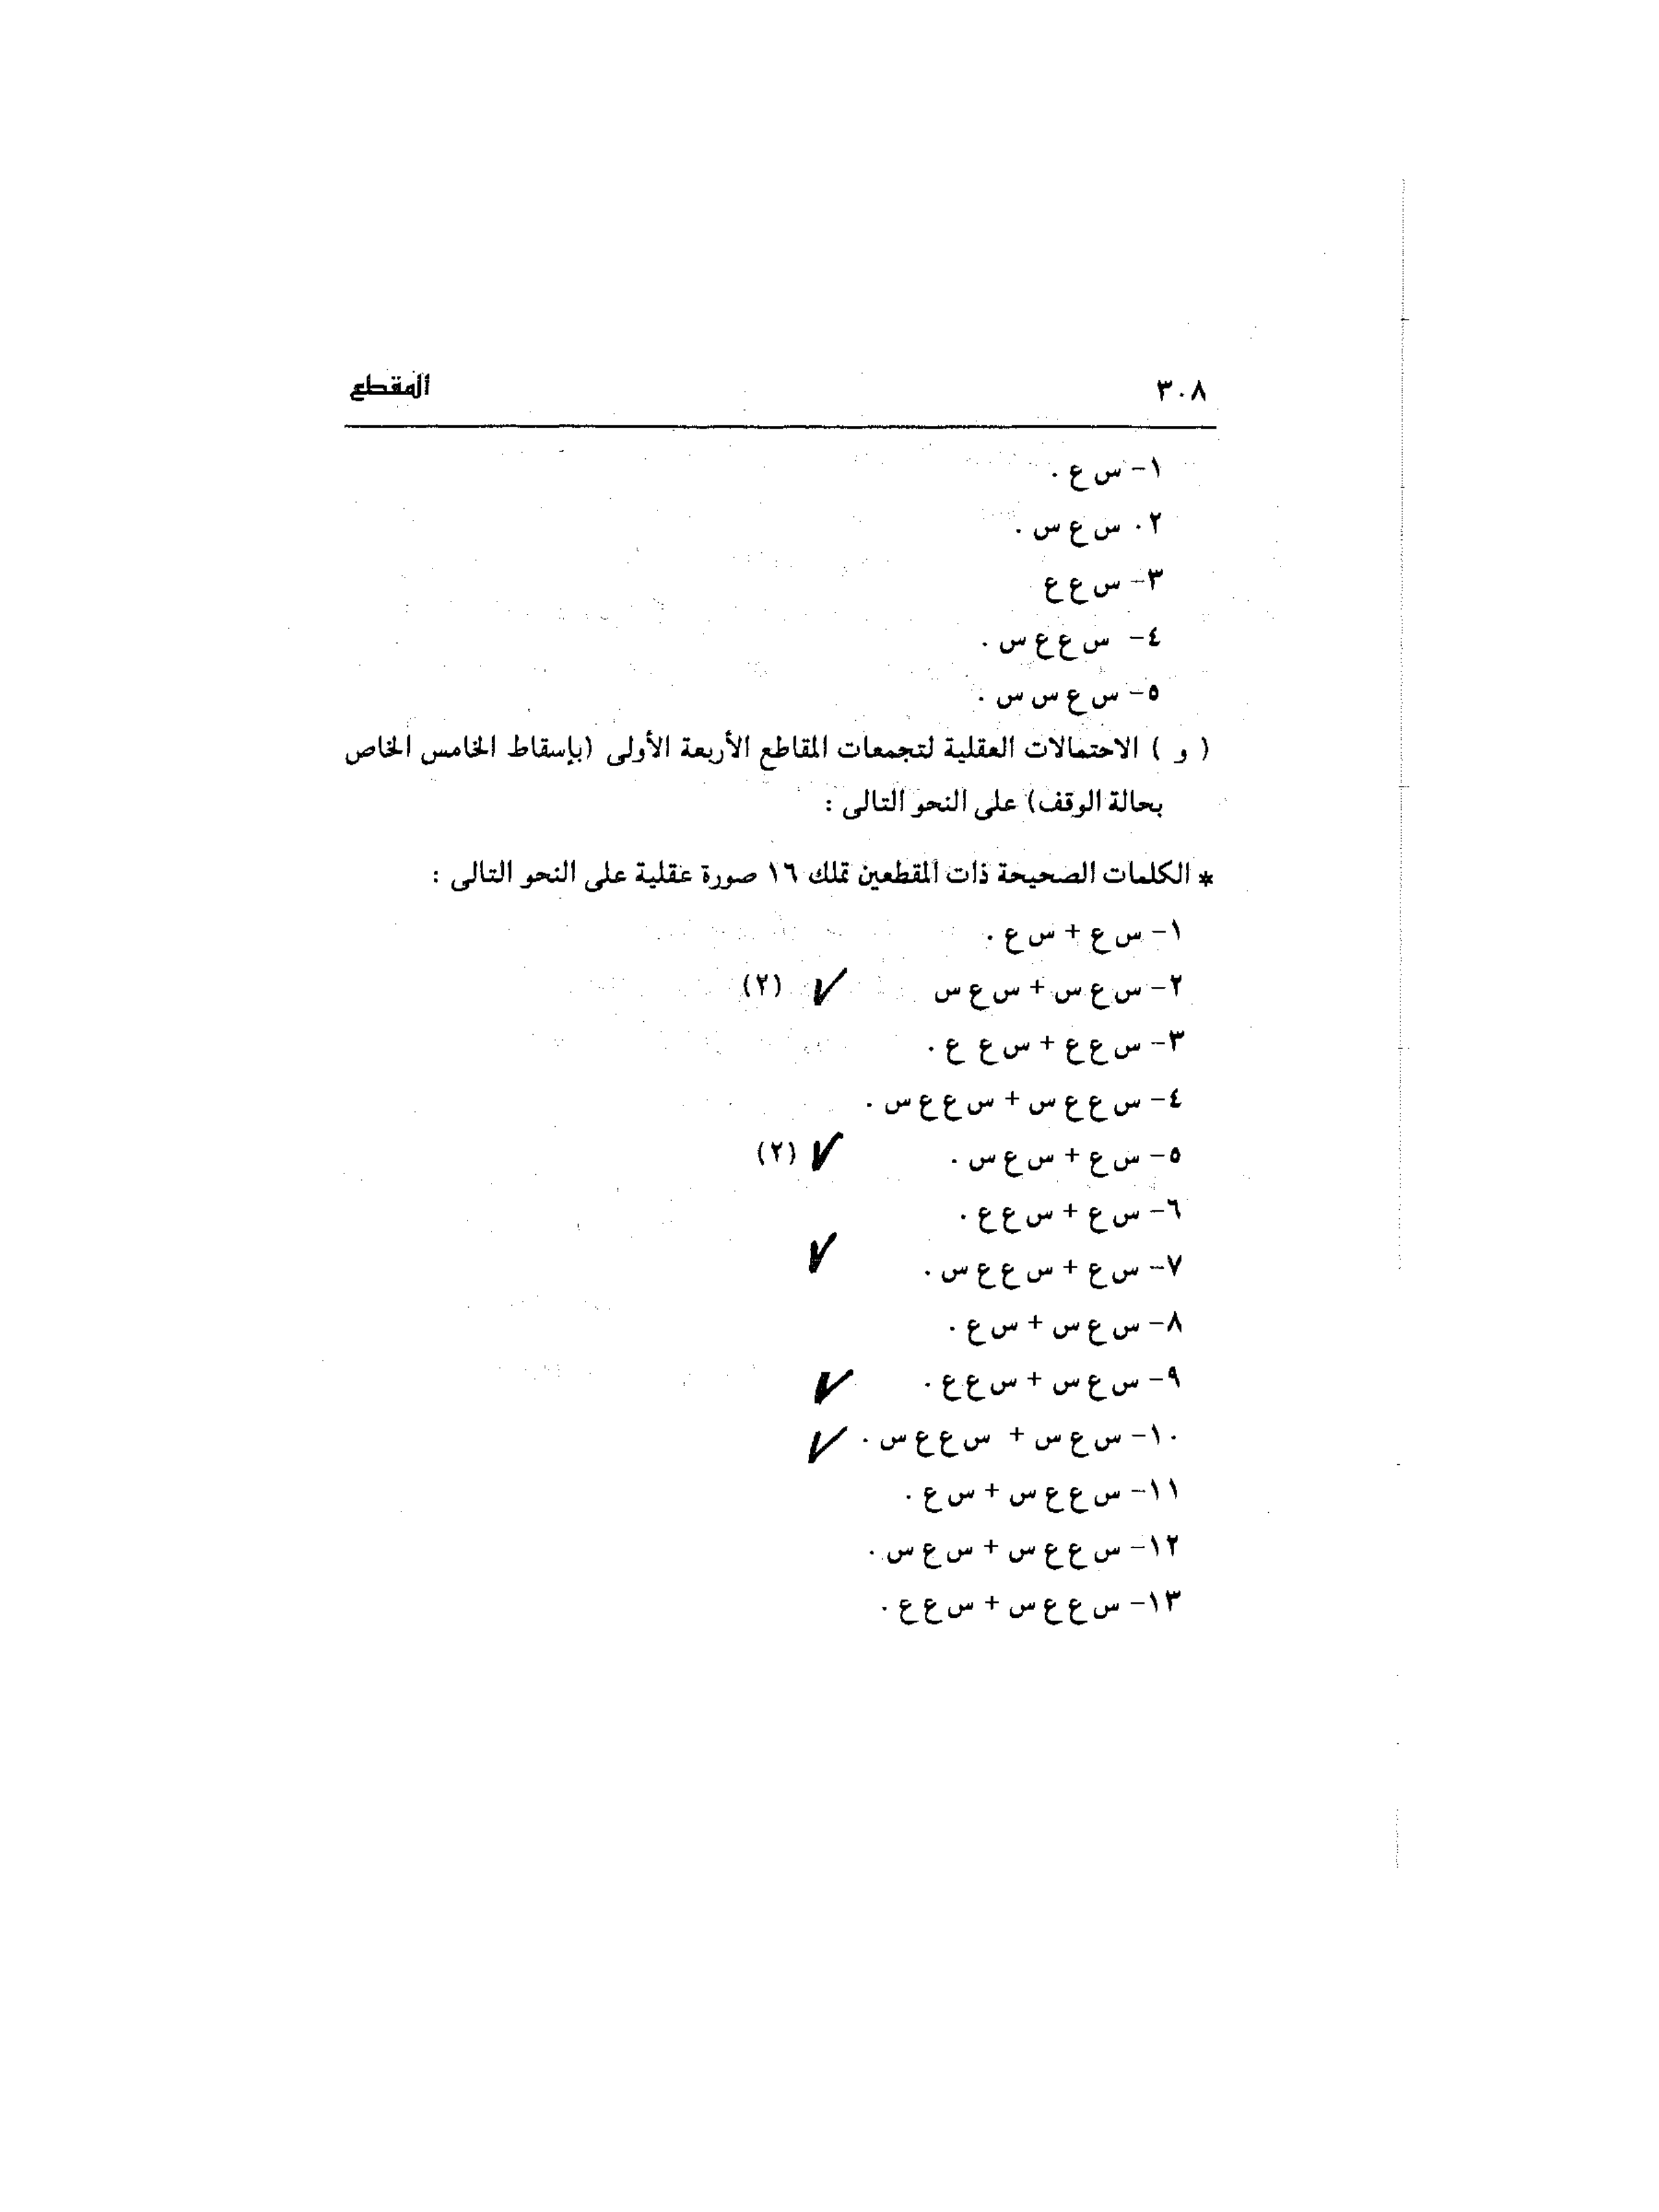 ٣٠٨ المقطع
١- س ع .
٢٠ س ع س .
٣- س ع ع
٤- س ع ع س .
٥- س ع س س .
( و ) الاحتمالات العقلية لتجمعات المقاطع الأربعة الأولى (بإسقاط الخامس الخاص
بحالة الوقف) على النحو التالى :
* الكلمات الصحيحة ذات المقطعين تملك ١٦ صورة عقلية على النحو التالى :
١- س ع + س ع .
٢- س ع س + س ع س ✓ (٢)
٣- س ع ع + س ع ع .
٤- س ع ع س + س ع ع س .
٥- س ع + س ع س . ✓ (٢)
٦- س ع + س ع ع .
٧- س ع + س ع ع س . ✓
٨- س ع س + س ع .
٩- س ع س + س ع ع . ✓
١٠- س ع س + س ع ع س . ✓
١١- س ع ع س + س ع .
١٢- س ع ع س + س ع س .
١٣- س ع ع س + س ع ع .